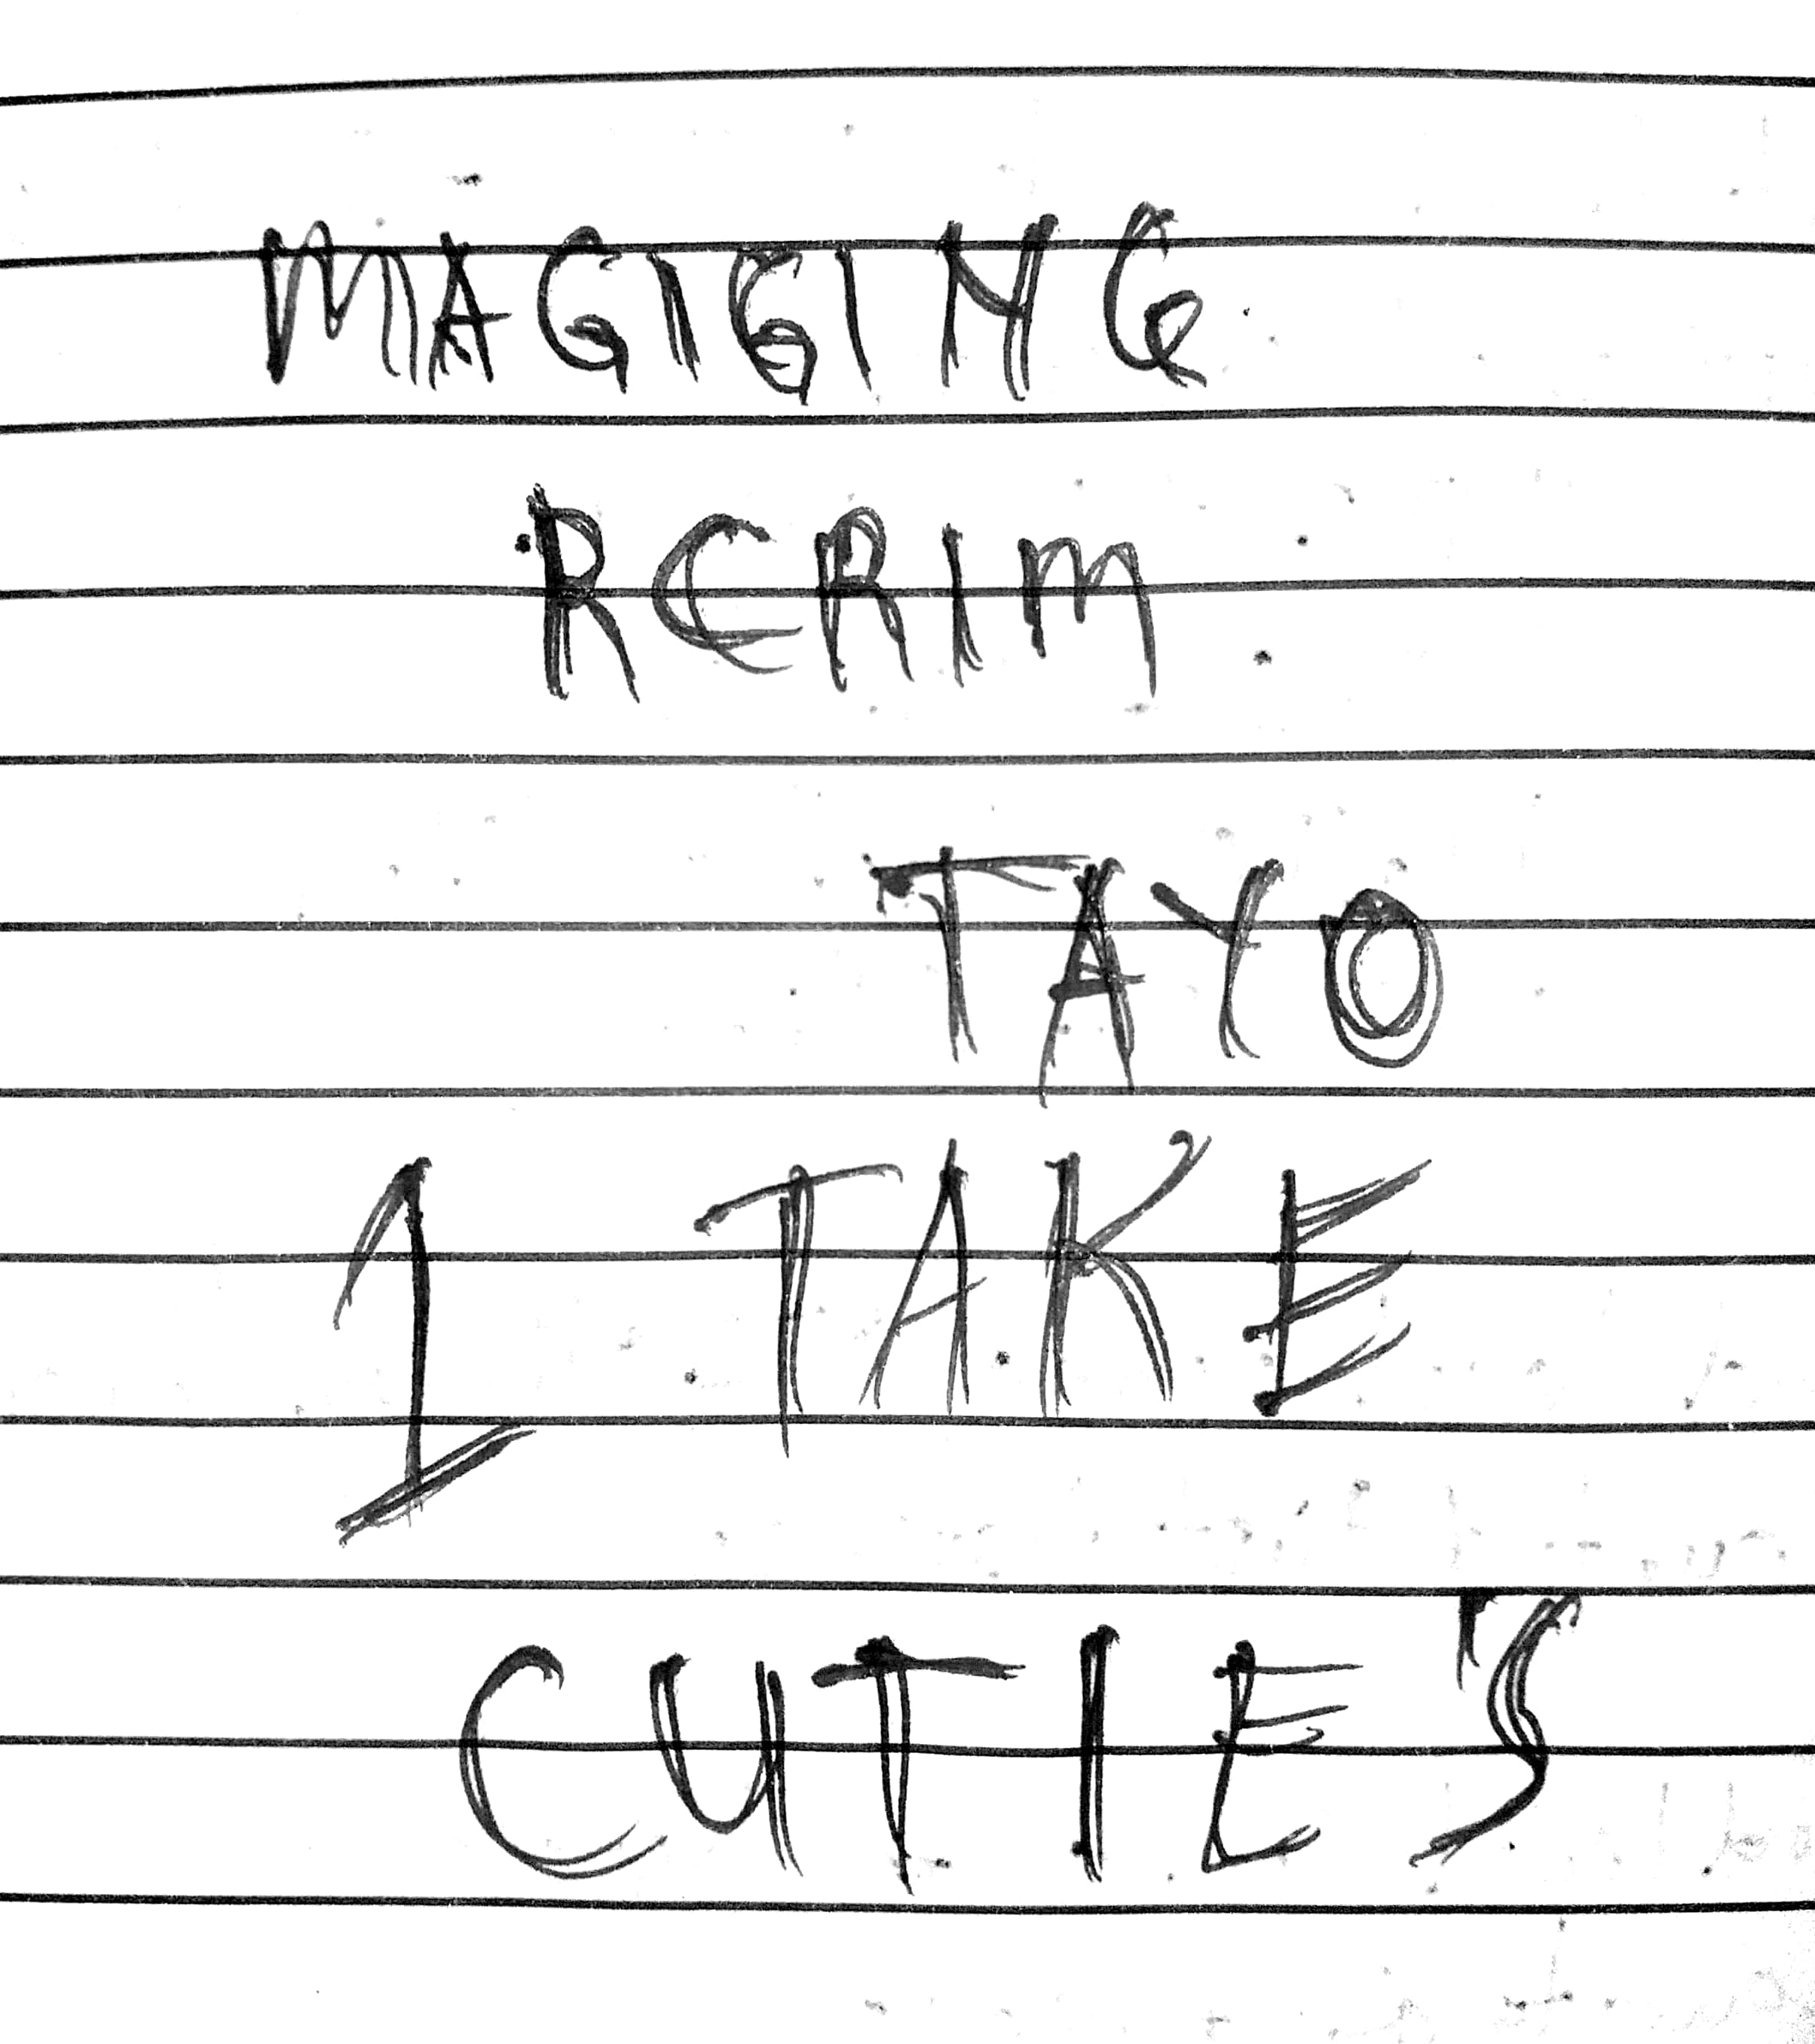 MAGIGING
RCRIM
TAYO
1 TAKE
CUTIE'S